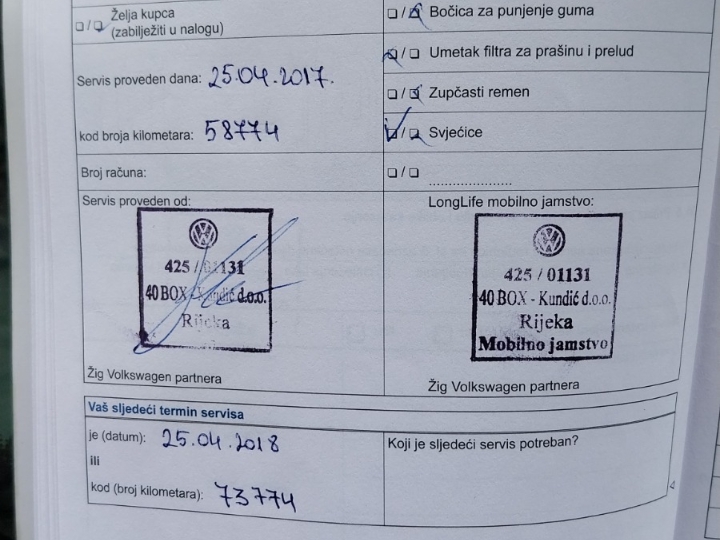 Želja kupca
(zabilježiti u nalogu)
Servis proveden dana: 25.04.2017.
kod broja kilometara: 58774
Broj računa:
Servis proveden od:
425 / 01131
40 BOX - Kundić d.o.o.
Rijeka
Žig Volkswagen partnera
/ Bočica za punjenje guma
/ Umetak filtra za prašinu i prelud
/ Zupčasti remen
/ Svjećice
/ ......................
LongLife mobilno jamstvo:
425 / 01131
40 BOX - Kundić d.o.o.
Rijeka
Mobilno jamstvo
Žig Volkswagen partnera
Vaš sljedeći termin servisa
je (datum): 25.04.2018
ili
kod (broj kilometara): 73774
Koji je sljedeći servis potreban?